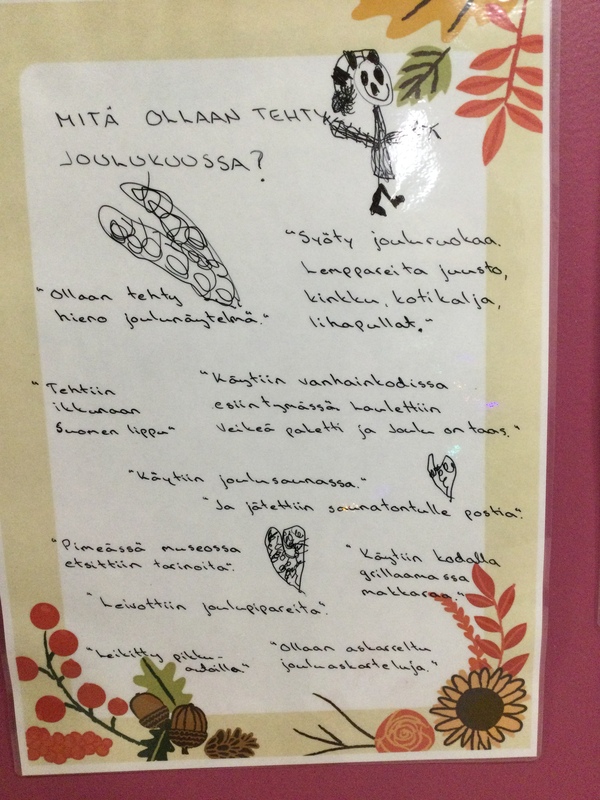 MITÄ OLLAAN TEHTY
JOULUKUUSSA?
"Syöty jouluruokaa.
Lemppareita juusto,
kinkku, kotikalja,
lihapullat."
"Ollaan tehty
hieno joulunäytelmä."
"Tehtiin
ikkunaan
Suomen lippu"
"Käytiin vanhainkodissa
esiintymässä laulettiin
Veikeä paketti ja Joulu on taas."
"Käytiin joulusaunassa."
"Ja jätettiin saunatontulle postia".
"Pimeässä museossa
etsittiin tarinoita".
"Käytiin kodalla
grillaamassa
makkaraa."
"Leivottiin joulupipareita".
"Leikitty pikku-
autoilla"
"Ollaan askarreltu
jouluaskarteluja."